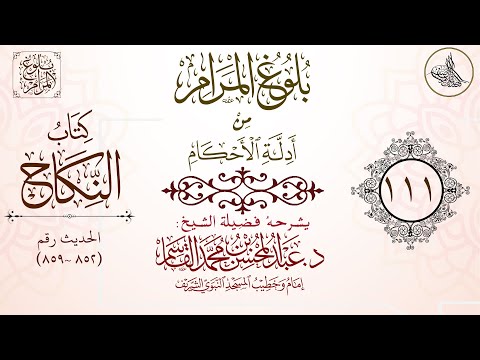 بلوغ المرام
بُلُوغُ المَرَامِ
مِنْ
أَدِلَّةِ الأَحْكَامِ
كِتَابُ
النِّكَاحِ
الحديث رقم
(٨٥٢ ~ ٨٥٩)
١١١
يشرحه فضيلة الشيخ:
د. عبد المحسن بن محمد القاسم
إمام وخطيب المسجد النبوي الشريف